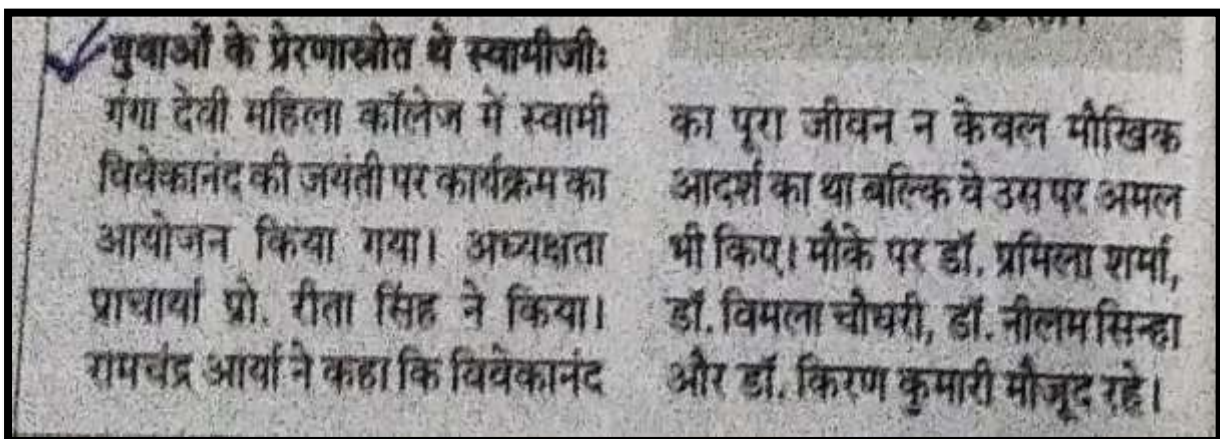 युवाओं के प्रेरणास्रोत थे स्वामीजी:
गंगा देवी महिला कॉलेज में स्वामी
विवेकानंद की जयंती पर कार्यक्रम का
आयोजन किया गया। अध्यक्षता
प्राचार्या प्रो. रीता सिंह ने किया।
रामचंद्र आर्या ने कहा कि विवेकानंद
का पूरा जीवन न केवल मौखिक
आदर्श का था बल्कि वे उस पर अमल
भी किए। मौके पर डॉ. प्रमिला शर्मा,
डॉ. विमला चौधरी, डॉ. नीलम सिन्हा
और डॉ. किरण कुमारी मौजूद रहे।